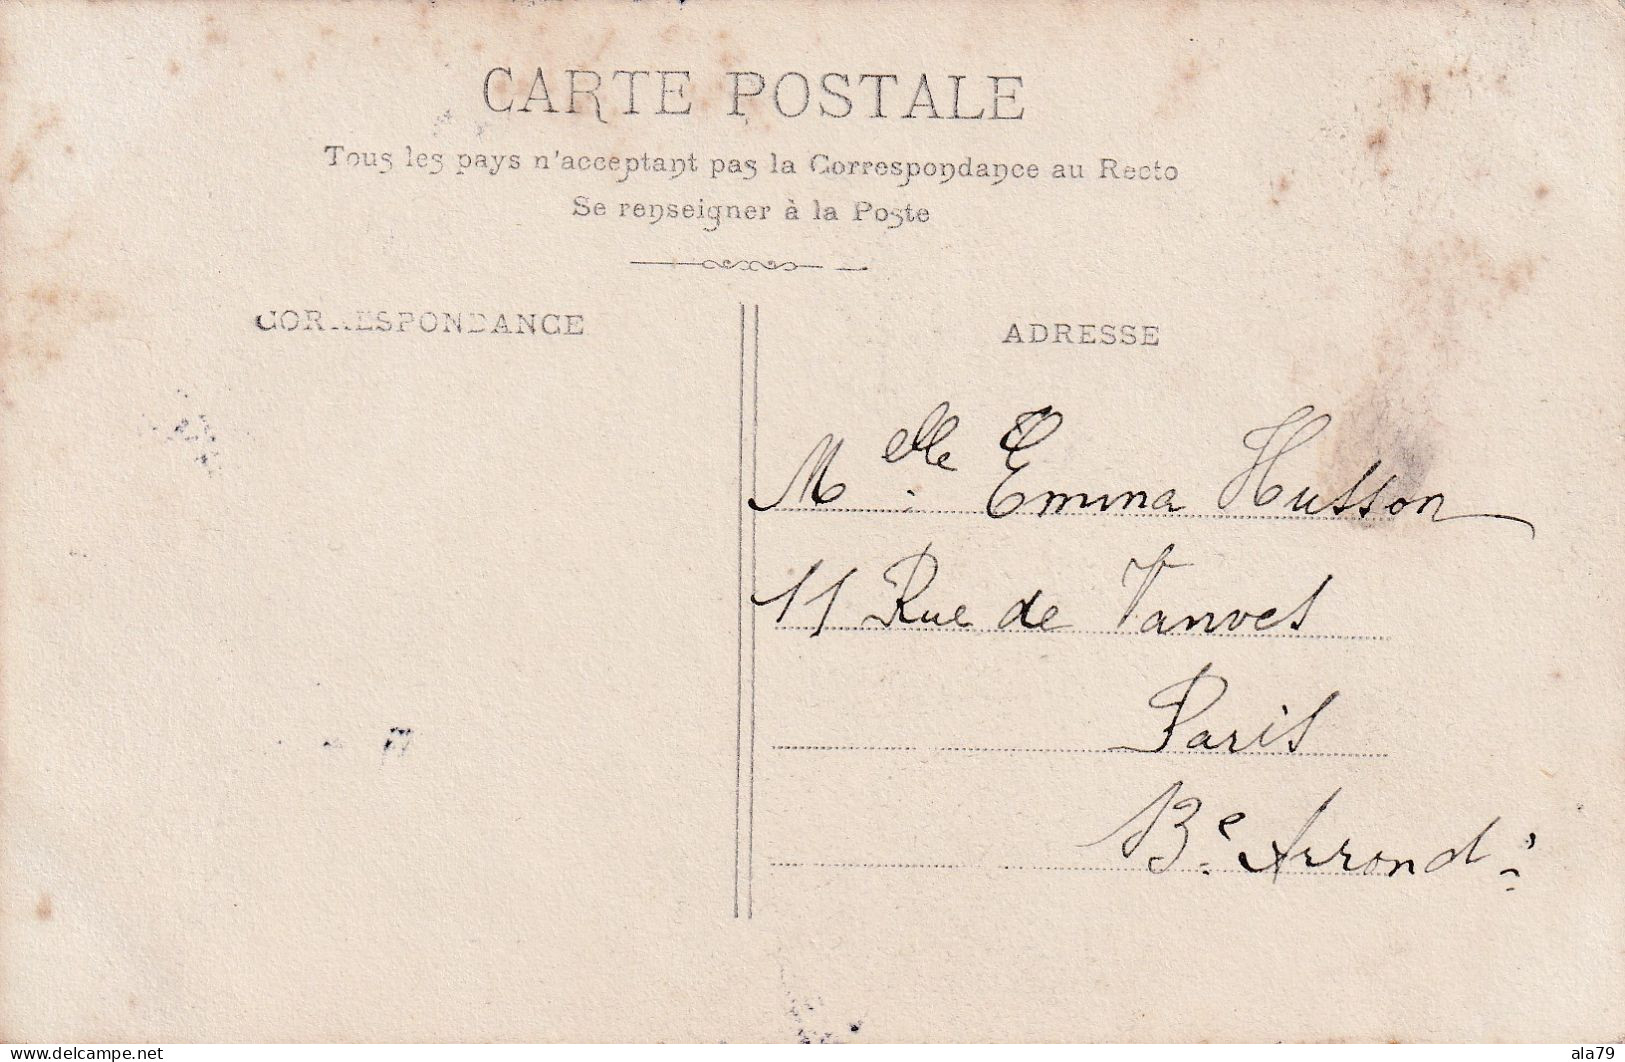 CARTE POSTALE
Tous les pays n'acceptant pas la Correspondance au Recto
Se renseigner à la Poste
CORRESPONDANCE
ADRESSE
Melle. Emma Husson
11 Rue de Vanves
Paris
13e. Arrondt
delcampe.net
ala79